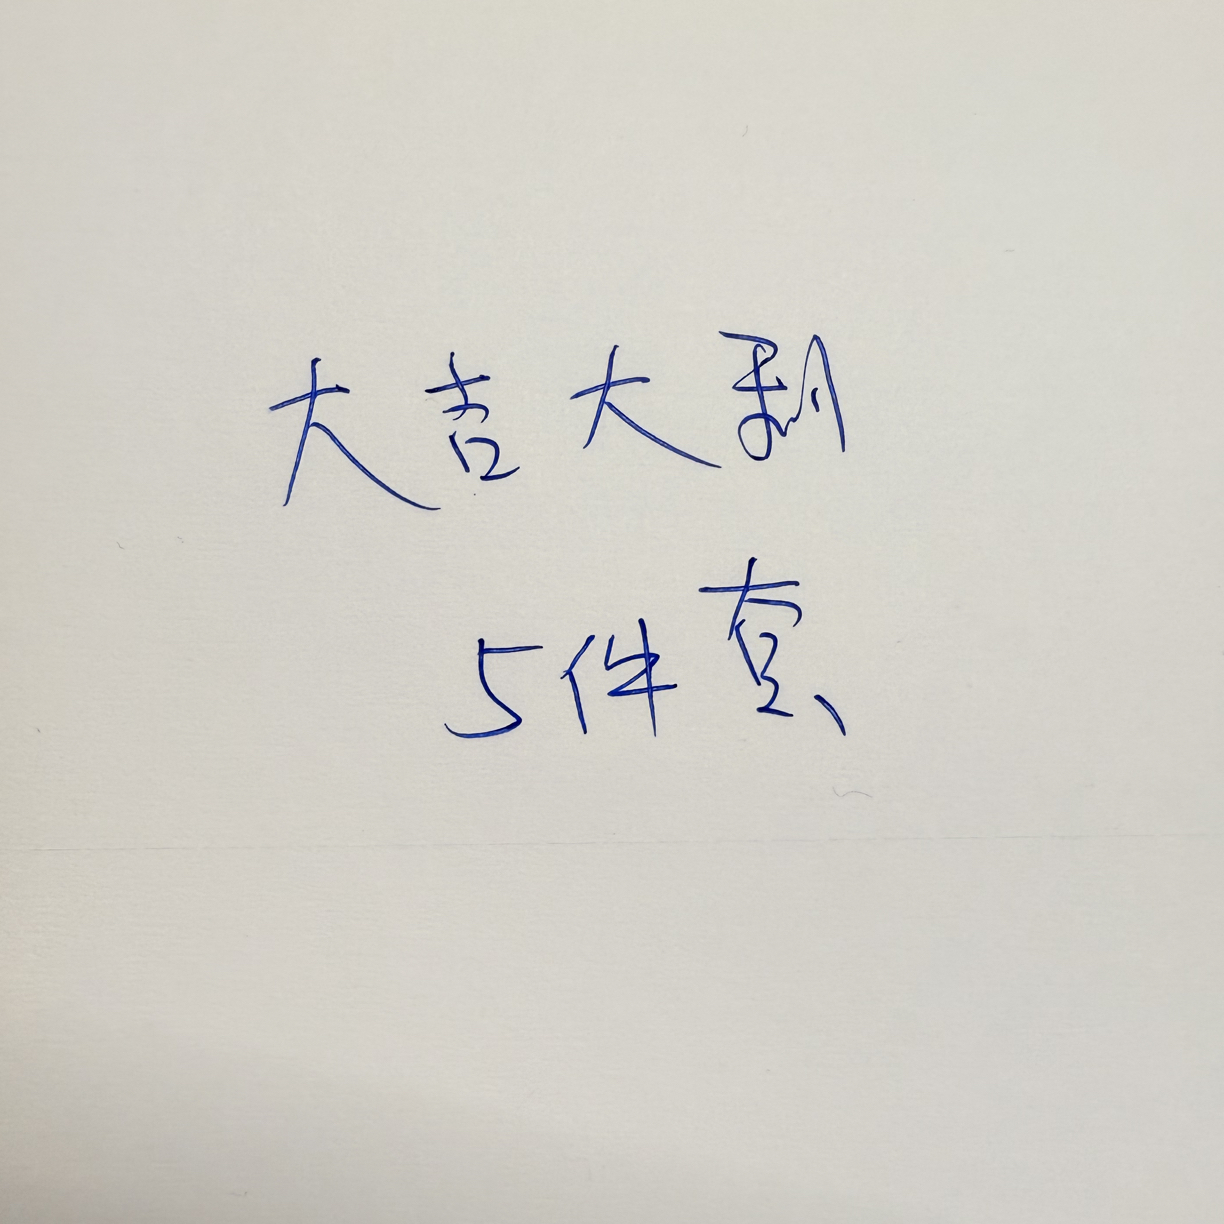 大吉大利
5件套